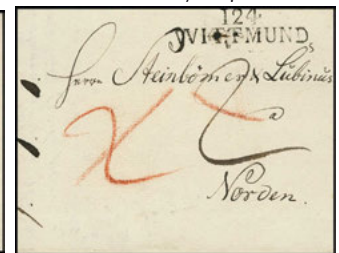 124
WITTMUND
Herrn Steinbömer & Lübinus
Norden.